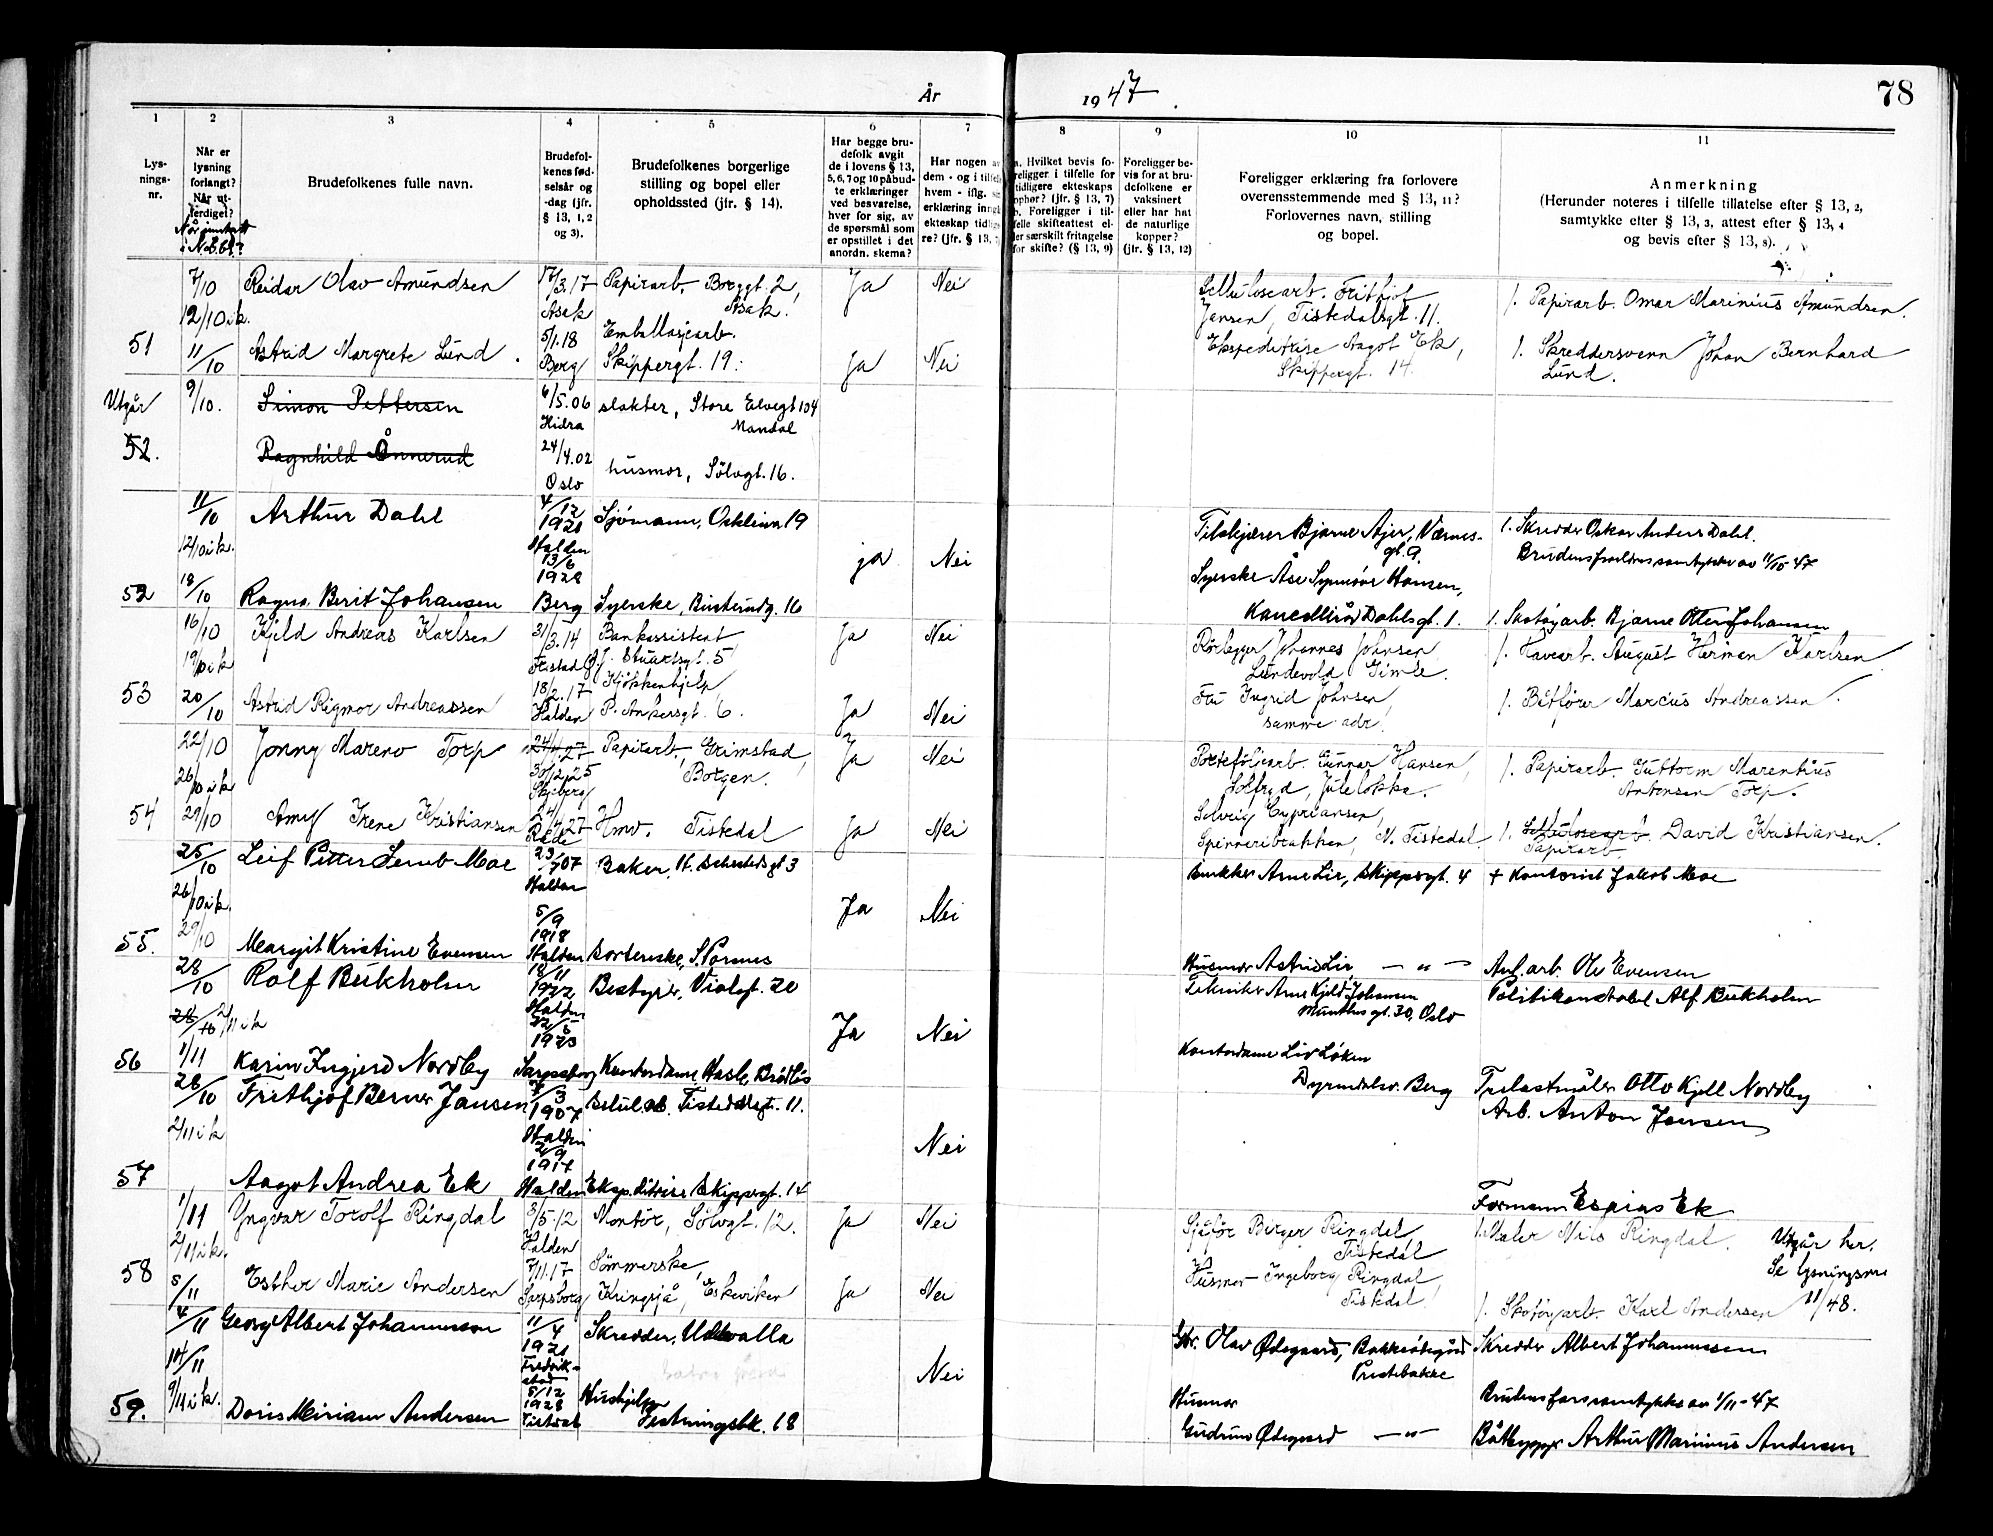 År 1947
78
1
2
3
4
5
6
7
8
9
10
11
Lys-
nings-
nr.
Når er
lysning
forlangt?
Når ut-
ferdiget?
Brudefolkenes fulle navn.
Brudefol-
kenes fød-
selsår og
-dag (jfr.
§ 13, 1, 2
og 3).
Brudefolkenes borgerlige
stilling og bopel eller
opholdssted (jfr. § 14).
Har begge bru-
defolk avgit
de i lovens § 13,
5, 6, 7 og 10 påbud-
te erklæringer
ved besvarelse,
hver for sig, av
de spørsmål som
er opstillet i det
anordn. skema?
Har nogen av
dem - og i tilfelle
hvem - iflg.
erklæring inngått
ekteskap tidlige-
re? (jfr. § 13, 7
a. Hvilket bevis fo-
religger i tilfelle for
tidligere ekteskaps
ophør? (jfr. § 13, 7)
b. Foreligger i til-
felle skifteattest el-
ler særskilt fritagelse
for skifte? (§ 13, 9)
Foreligger be-
vis for at bru-
defolkene er
vaksinert
eller har hat
de naturlige
kopper?
(jfr. § 13, 12)
Foreligger erklæring fra forlovere
overensstemmende med § 13, 11?
Forlovernes navn, stilling
og bopel.
Anmerkning
(Herunder noteres i tilfelle tillatelse efter § 13, 2,
samtykke efter § 13, 3, attest efter § 13, 4
og bevis efter § 13, 8).
7/10 Reidar Olav Amundsen 17/3.17 Papirarb. Borggt. 2, Ja Nei Cellulosearb. Frithjof
12/10 i k. Asak Asak. Jansen, Tistedalsgt. 11. f. Papirarb. Omar Marinius Amundsen.
51 11/10 Astrid Margrete Lund. 5/1.18 Emballasjearb. Ekspeditrise Aagot Ek, f. Skreddersvenn Johan Bernhard
Berg Skippergt. 19. Ja Nei Skippergt. 14. Lund.
Utgår 9/10. Simon Pettersen 6/5.06 slakter, Store Elvegt 104
Hidra Mandal
52. Ragnhild Ånnerud 24/4.02 husmor, Sölvgt. 16.
Oslo
11/10 Arthur Dahl 4/12 1921 Sjömann, Oskleiva 19 Tilskjærer Bjarne Ajer, Værnes- f. Skredder Oskar Anders Dahl.
12/10 i k. Halden ja Nei gt. 9 Brudens foreldres samtykke av 11/10-47
13/6 1928 Syerske Åse Synnöve Hansen,
52 18/10 Ragna Berit Johansen Berg Syerske, Busterudg. 16 Kancelliråd Dahls gt. 1. f. Skotöyarb. Bjarne Otter Johansen
16/10 Kjeld Andreas Karlsen 31/3.14 Bankassistent Ja Nei Rörlegger Johannes Johnsen
19/10 i k J. Stuartsgt. 5 Lundevold Gimle. f. Havearb. August Herman Karlsen
53 20/10 Astrid Rigmor Andreassen 18/2.17 Kjøkkenhjelp, Fru Ingrid Johnsen, f. Båtförer Marcus Andreassen.
Halden P. Ankersgt. 6. Ja Nei samme adr.
22/10 Jonny Mareno Torp 24/4.27 Papirarb., Grimstad, Ja Nei Porteføljearb. Gunnar Hansen, f. Papirarb. Guttorm Marentius
26/10 i k 30/12.25 Borgen. Solfryd, Juleløkka. Antonsen Torp.
Skjeberg
54 29/10 Amy Irene Kristiansen 24/4.27 Hmv. Tistedal Ja Nei Solveig Cypriansen, f. Cellulosearb. David Kristiansen.
Råde Spinneribrakken, N. Tistedal. Papirarb.
25/10 Leif Petter Semb Moe 23/07 Baker, H. Schultedsgt 3 Arne Lie, Skippergt. 4 + Kontorist Jakob Moe
26/10 i k. Halden Ja Nei
29/10 5/9 1918
55. Margit Kristine Evensen Halden Sorterske, S. Pornes Husmor Astrid Lie, — " — Anl. arb. Ole Evensen
28/10 Rolf Bükholm 18/11 1922 Bestyrer, Violgt. 20 Tekniker Arne Kjeld Johansen Politikonstabel Alf Bükholm
Halden Munthesgt. 30, Oslo
28/10 2/11 i k 1923 Ja Nei
56 1/11 Karin Ingjerd Nordby Sarpsborg Kontordame, Hasle, Brödløs Kontordame Liv Löken
Dyrendalsv. Berg Trelastmåler Otto Kjell Nordby
28/10 Frithjof Berner Jansen 3 1907 Celul. arb. Tistedalsgt. 11. Arb. Anton Jansen
2/11 i k Halden Nei
2/9 1914
57 Aagot Andrea Ek Halden Ekspeditrise Skippergt. 14 Formann Esaias Ek
1/11 Yngvar Torolf Ringdal 3/5.12 Montör, Sölvgt. 12. Ja Nei Sjåfør Birger Ringdal f. Maler Nils Ringdal. Utgår her.
2/11 i k. Halden Tistedal Se lysningsnr.
58 5/11 Esther Marie Andersen 7/11.17 Sömmerske, Husmor Ingeborg Ringdal, 11/48.
Sarpsborg Kringsjå, Eskeviken Ja Nei Tistedal. f. Skotöyarb. Karl Andersen
4/11 Georg Albert Johannesson 11/4 1921 Skredder, Uddevalla Gbr. Olav Ødegaard, Bakkeödegård Skredder Albert Johannessen
14/11 Fredrik- Nei Prestebakke
9/11 i k. stad
59. Doris Miriam Andersen 5/12 1928 Hushjelp Husmor Brudens fars samtykke av 1/11-47
Tistedal Festningsbk. 18 Gudrun Ødegaard — " — Båtbygger Arthur Marinius Andersen